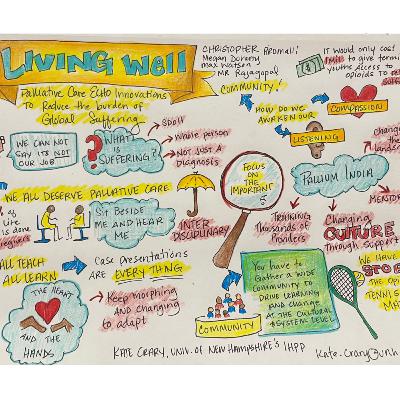 LIVING Well
Palliative Care Echo Innovations
To Reduce the burden of
Global Suffering
CHRISTOPHER
Megan Doherty
Max Watson
MR Rajagopal
COMMUNITY!
IT would only cost
to give
youths access to
opioids to
HOW DO WE
AWAKEN OUR
COMPASSION
LISTENING
WE CAN NOT
SAY ITS NOT
OUR JOB
?
WHAT
IS
SUFFERING?
Soul
Whole person
NOT JUST A
Diagnosis
FOCUS
ON THE
IMPORTANT
Changing
the
landscape
PALLIUM INDIA
WE ALL DESERVE PALLIATIVE CARE
of
Life
is done
Sit Beside
ME and HEAR
ME
INTER
DISCIPLINARY
TRAINING
Thousands of
Providers
Changing
CULTURE
Through support
ALL TEACH
ALL LEARN
Case presentations
ARE EVERY THING
THE HEART
AND THE
HANDS
Keep morphing
and changing
to adapt
COMMUNITY
You have to
Gather a wide
COMMUNITY
to DRIVE LEARNING
and change
AT THE CULTURAL
& SYSTEM LEVEL
WE HAVE
STOP
THE
TENNIS
KATE CRARY, UNIV. OF NEW HAMPSHIRE'S IHPP
Kate.Crary@unh